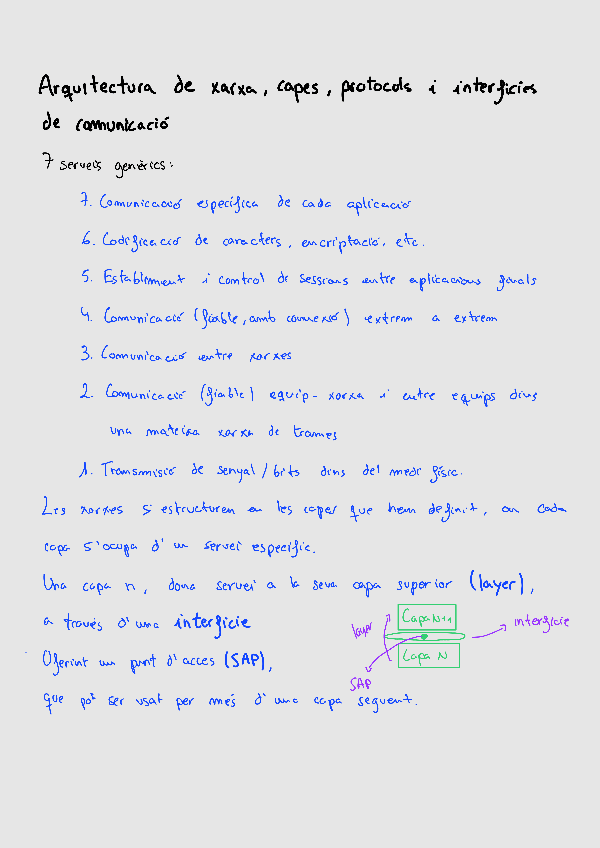 Arquitectura de xarxa, capes, protocols i interfícies
de comunicació
7 serveis genèrics:
7. Comunicació específica de cada aplicació
6. Codificació de caracters, encriptació, etc.
5. Establiment i control de sessions entre aplicacions finals
4. Comunicació (fiable, amb connexió) extrem a extrem
3. Comunicació entre xarxes
2. Comunicació (fiable) equip-xarxa i entre equips dins
una mateixa xarxa de trames
1. Transmisió de senyal/bits dins del medi físic.
Les xarxes s'estructuren en les capes que hem definit, on cada
capa s'ocupa d'un servei específic.
Una capa n, dona servei a la seva capa superior (layer),
a través d'una interfície
Oferint un punt d'acces (SAP),
que pot ser usat per més d'una capa seguent.
layer
Capa N+1
interfície
Capa N
SAP